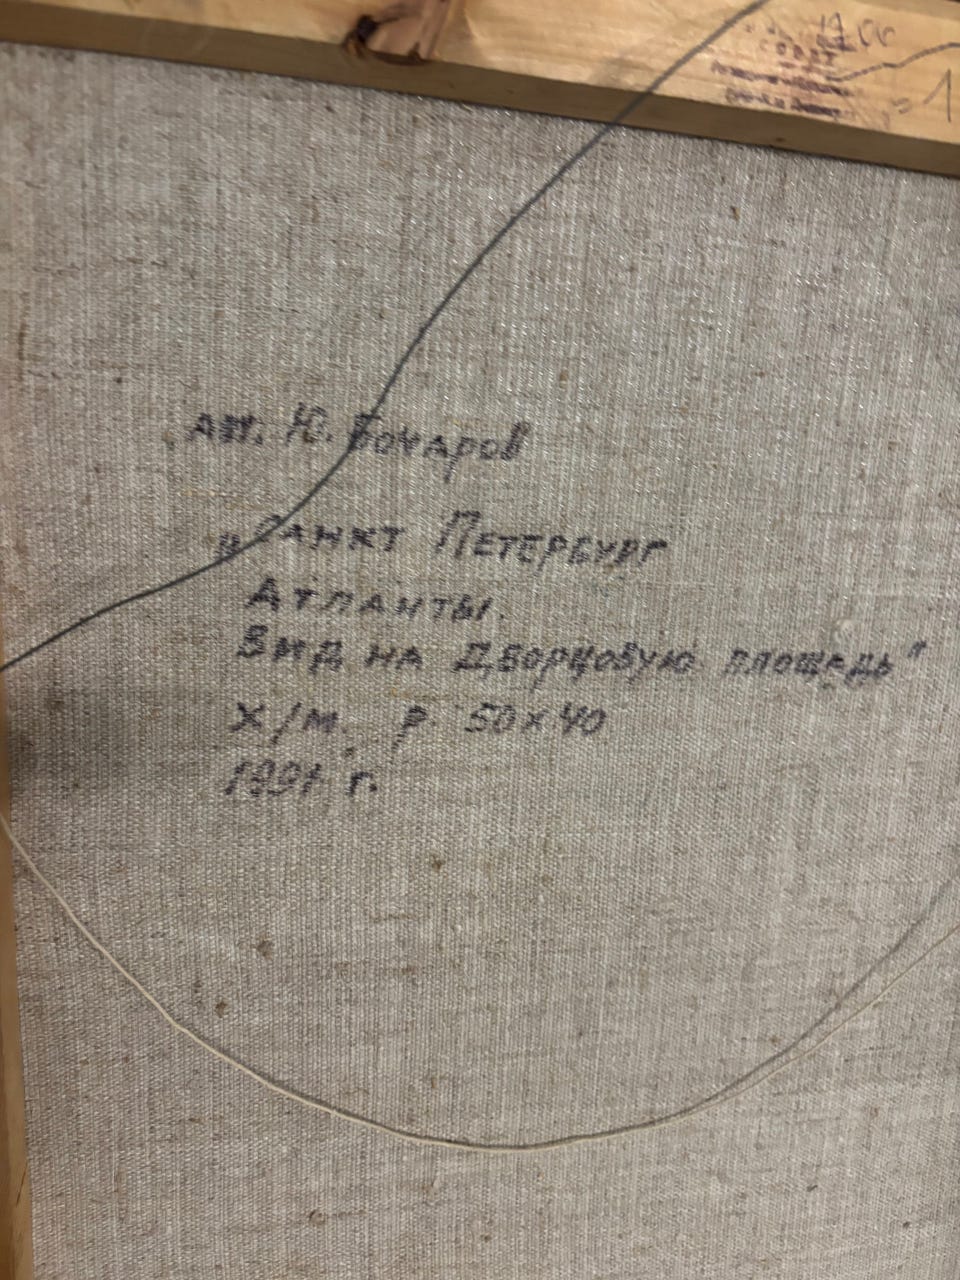 17.00
СОРТ
= 1
авт. Ю. Бочаров
„Санкт Петербург
Атланты.
Вид на Дворцовую площадь"
х/м. р 50х40
1991 г.